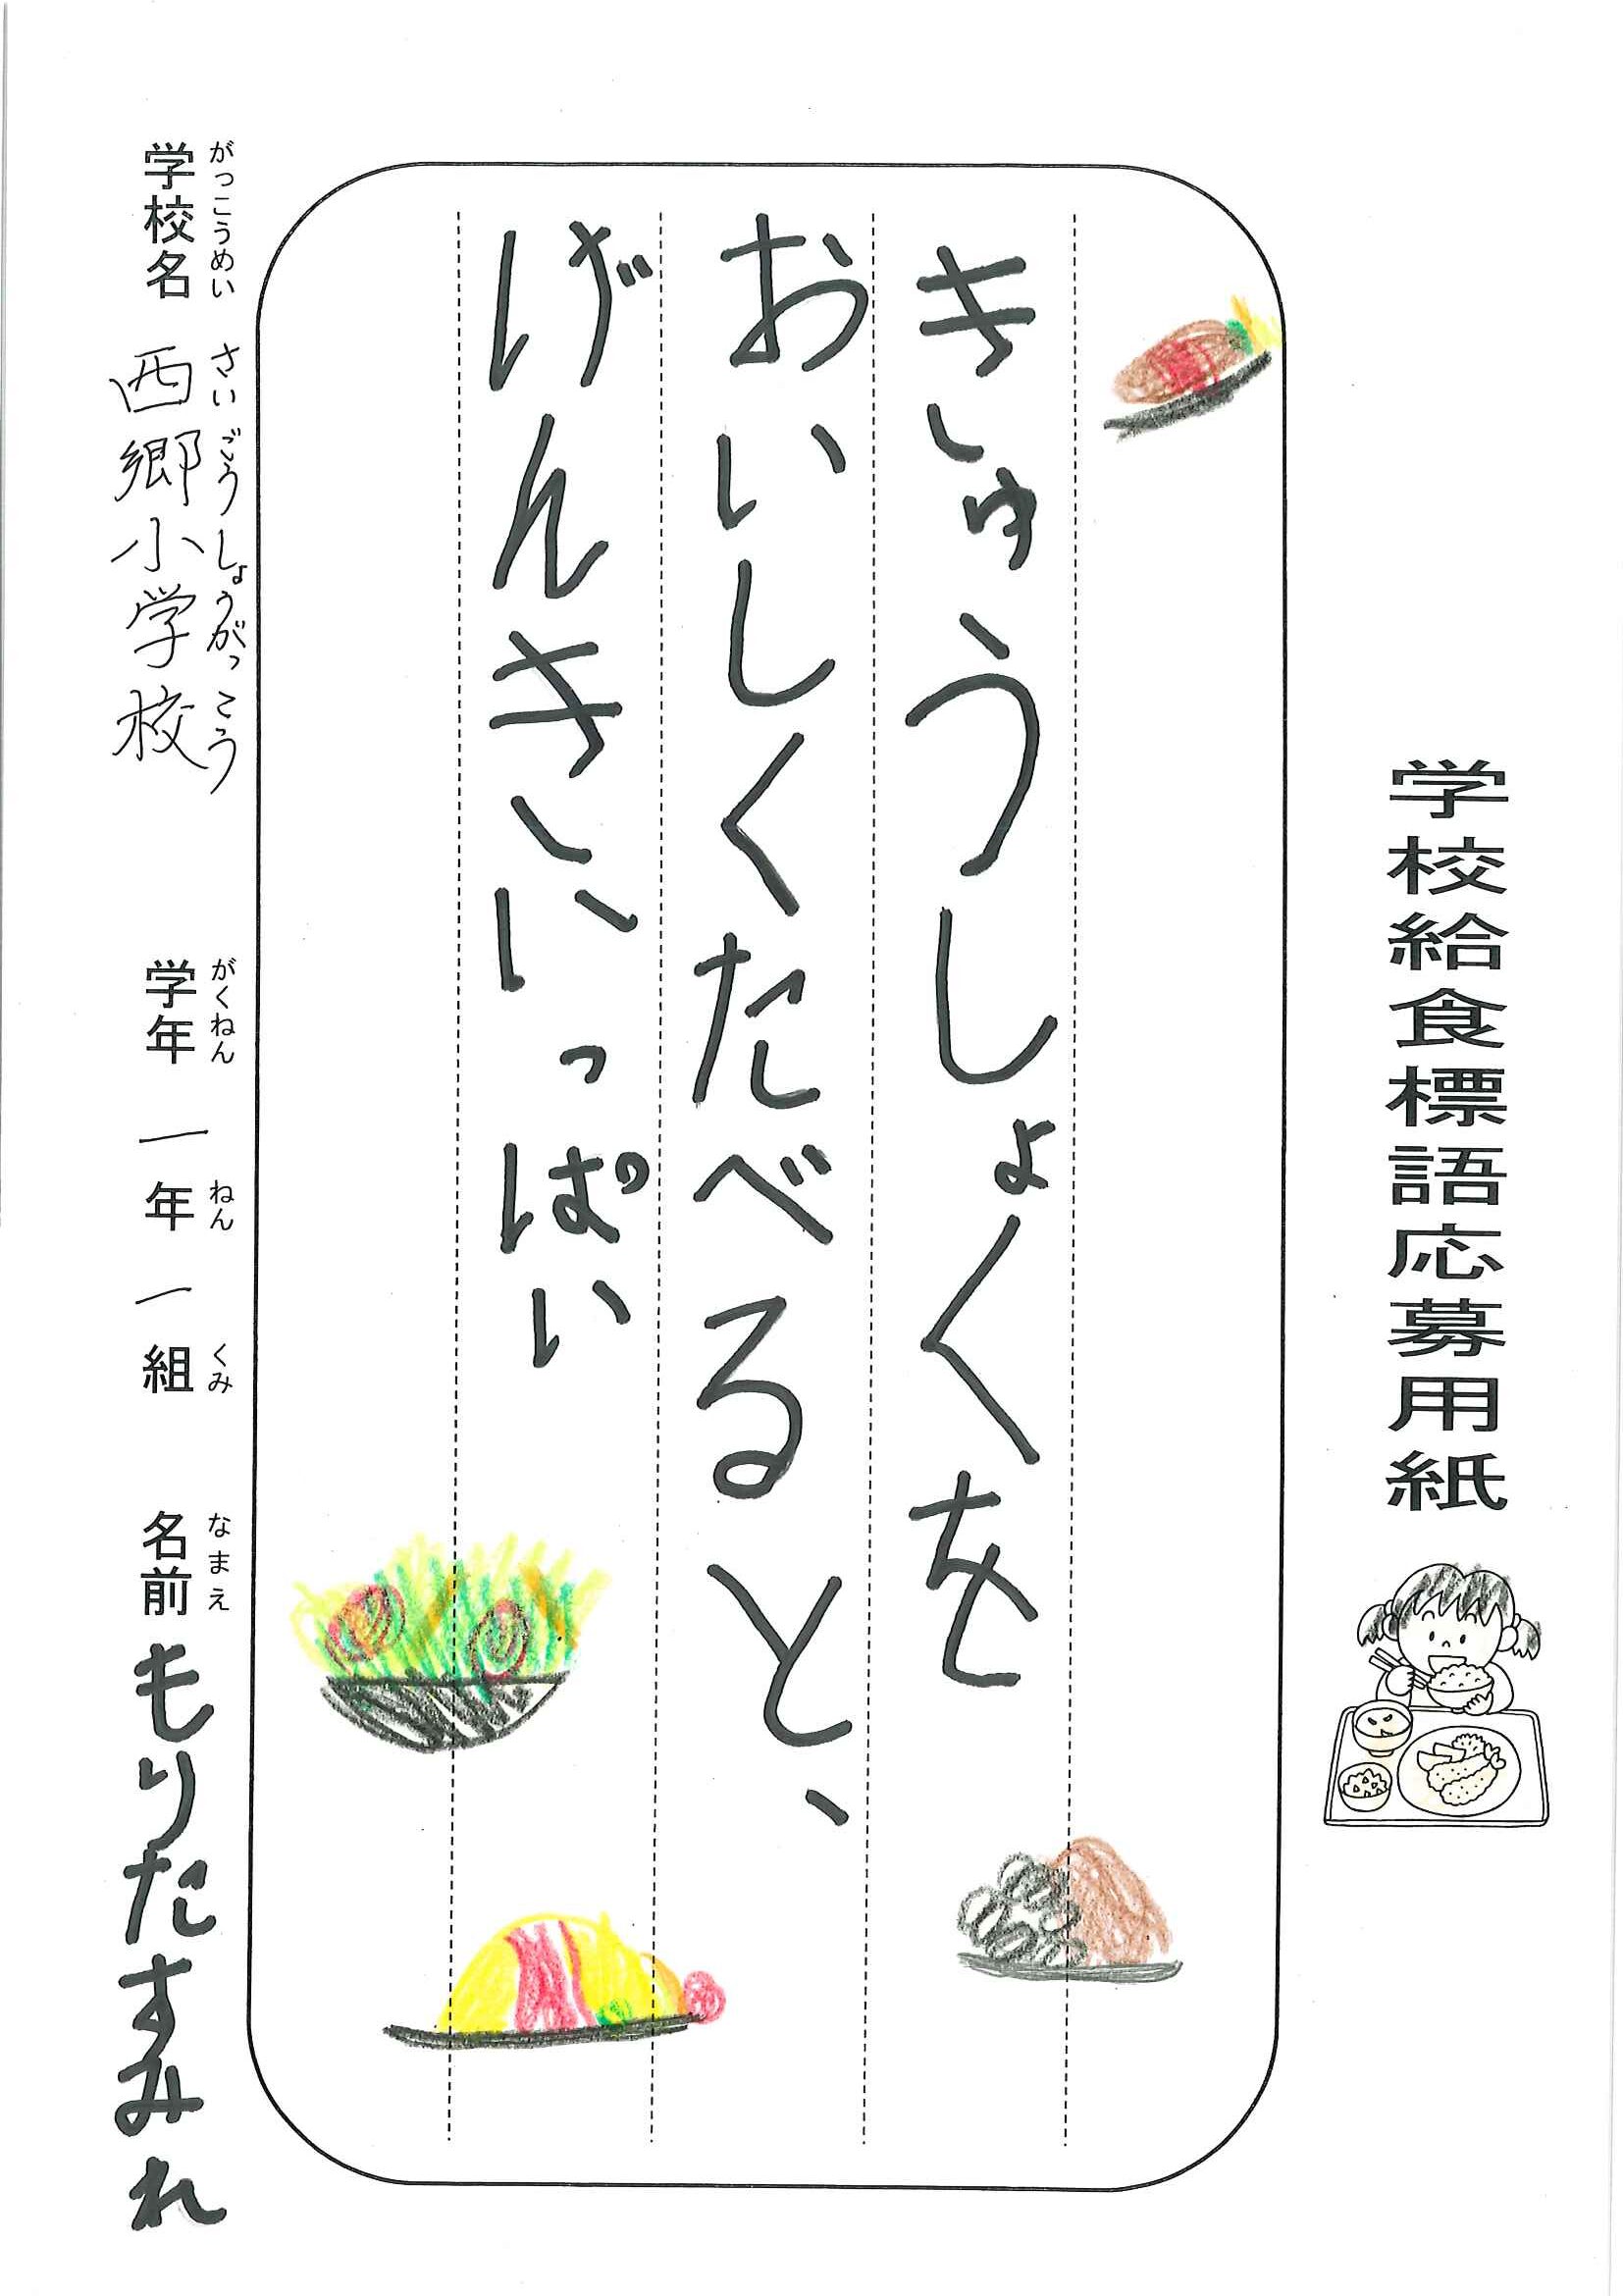 学校給食標語応募用紙
きゅうしょくを
おいしくたべると、
げんきいっぱい
がっこうめい さいごうしょうがっこう がくねん ねん くみ なまえ
学校名 西郷小学校 学年 一年 一組 名前 もりたすみれ